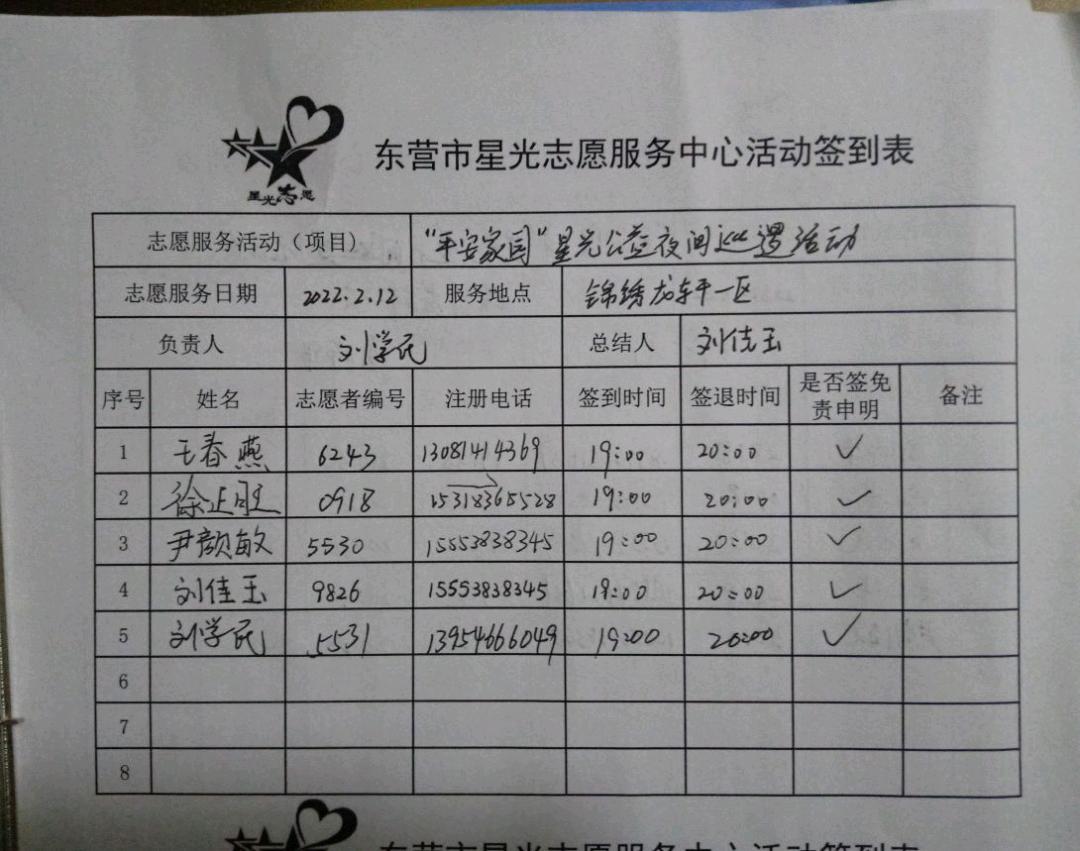 星光志愿
东营市星光志愿服务中心活动签到表
志愿服务活动（项目） “平安家园”星光公益夜间巡逻活动
志愿服务日期 2022.2.12 服务地点 锦绣龙轩一区
负责人 刘学民 总结人 刘佳玉
序号 姓名 志愿者编号 注册电话 签到时间 签退时间 是否签免责申明 备注
1 王春燕 6243 13081414369 19:00 20:00 ✓
2 徐正旺 0918 15318365528 19:00 20:00 ✓
3 尹颜敏 5530 15553838345 19:00 20:00 ✓
4 刘佳玉 9826 15553838345 19:00 20:00 ✓
5 刘学民 5531 13954666049 19:00 20:00 ✓
6
7
8
东营市星光志愿服务中心活动签到表